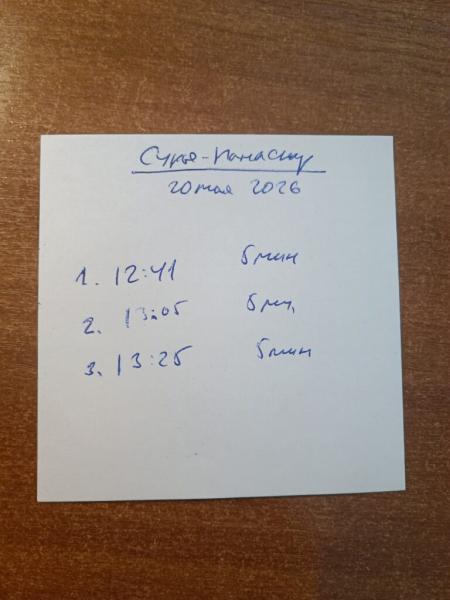 20 мая 2026
1. 12:41 5 мин
2. 13:05 5 ми,
3. 13:25 5 мин